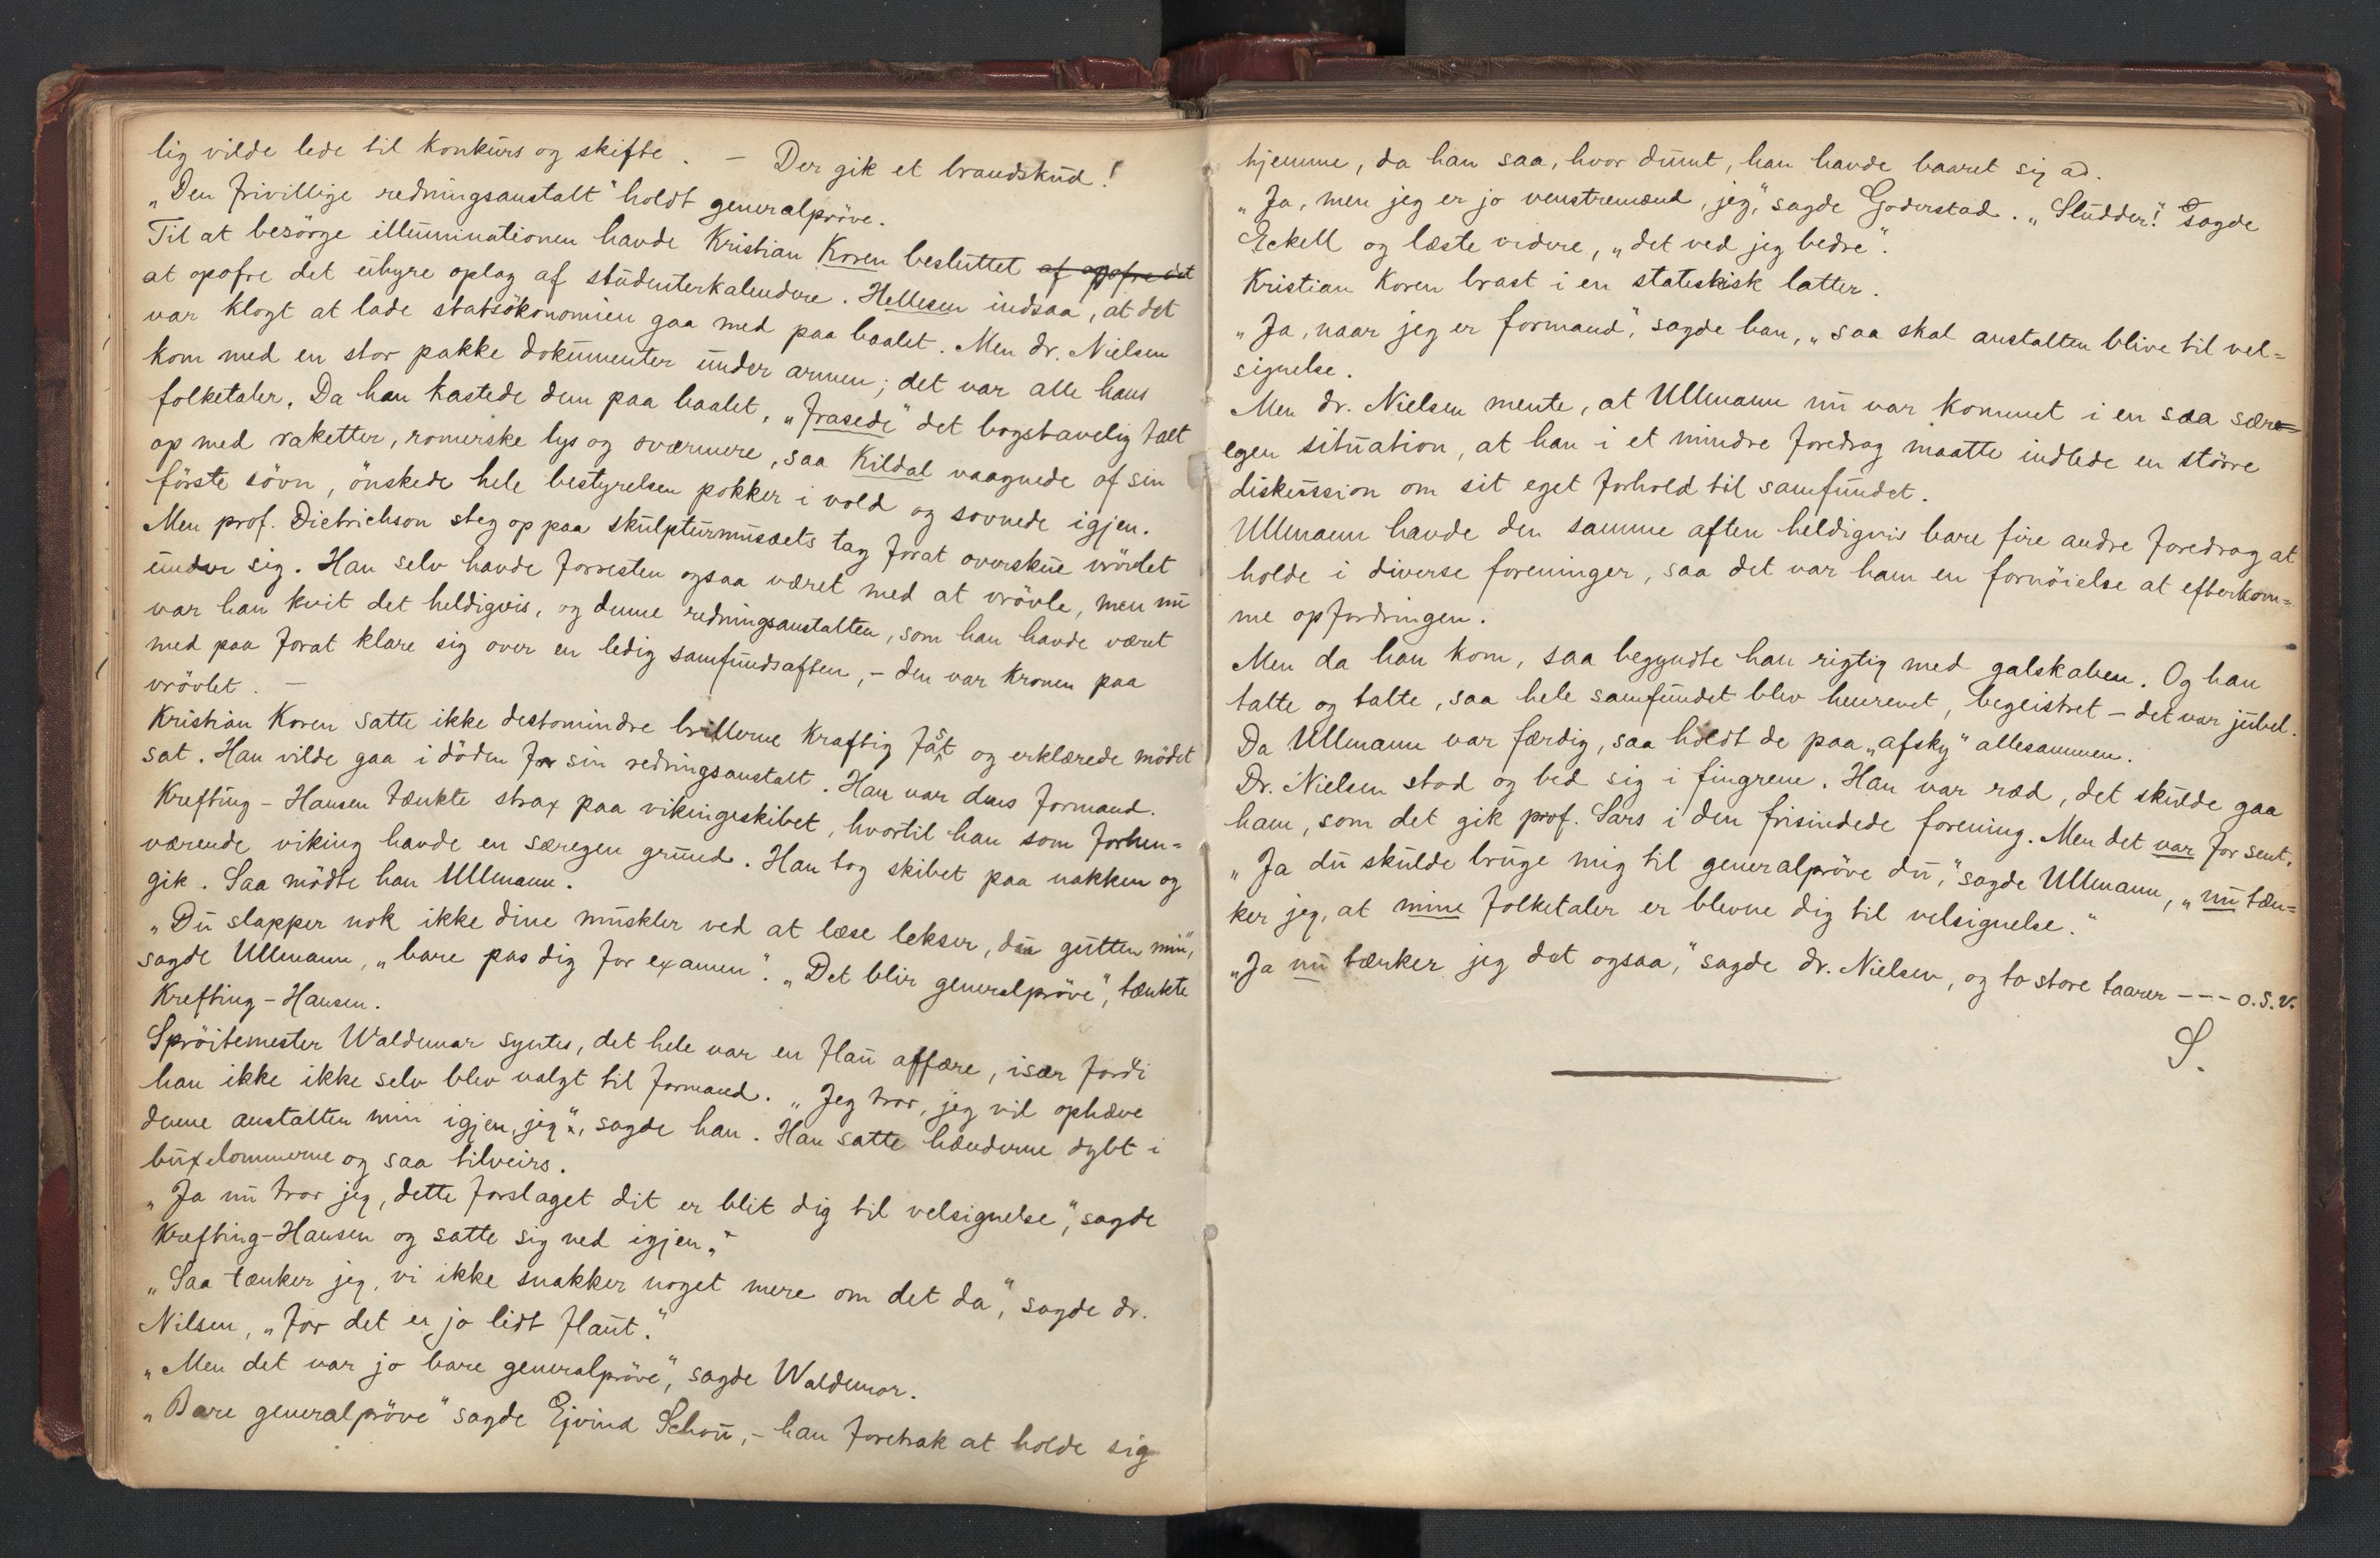 lig vilde lede til konkurs og skifte. – Der gik et brandskud!
„Den frivillige redningsanstalt" holdt generalpröve.
Til at besörge illuminationen havde Kristian Koren besluttet af opofre det
at opofre det uhyre oplag af studenterkalendere. Hellesen indsaa, at det
var klogt at lade statsökonomien gaa med paa baalet. Men dr. Nielsen
kom med en stor pakke dokumenter under armen; det var alle hans
folketaler. Da han kastede dem paa baalet, „frasede" det bogstavelig talt
op med raketter, romerske lys og sværmere, saa Kildal vaagnede af sin
förste sövn, önskede hele bestyrelsen pokker i vold og sovnede igjen.
Men prof. Dietrichson steg op paa skulpturmusæets tag forat overskue vrövlet
under sig. Han selv havde forresten ogsaa været med at vrövle, men nu
var han kvit det heldigvis, og denne redningsanstalten, som han havde været
med paa forat klare sig over en ledig samfundsaften, – den var kronen paa
vrövlet. –
Kristian Koren satte ikke destomindre brillerne kraftig fast og erklærede mödet
sat. Han vilde gaa i döden for sin redningsanstalt. Han var dens formand.
Krefting-Hansen tænkte strax paa vikingeskibet, hvortil han som forhen=
værende viking havde en særegen grund. Han tog skibet paa nakken og
gik. Saa mödte han Ullmann.
„Du slapper nok ikke dine muskler ved at læse lekser, du gutten min",
sagde Ullmann, „bare pas dig for examen". „Det blir generalpröve", tænkte
Krefting-Hansen.
Spröitemester Waldemar syntes, det hele var en flau affære, især fordi
han ikke ikke selv blev valgt til formand. „Jeg tror, jeg vil ophæve
denne anstalten min igjen, jeg", sagde han. Han satte hænderne dybt i
buxelommerne og saa tilveirs.
„Ja nu tror jeg, dette forslaget dit er blit dig til velsignelse", sagde
Krefting-Hansen og satte sig ned igjen."
„Saa tænker jeg, vi ikke snakker noget mere om det da", sagde dr.
Nilsen, „for det er jo lidt flaut."
„Men det var jo bare generalpröve", sagde Waldemar.
„Bare generalpröve" sagde Ejvind Schou, – han foretrak at holde sig
hjemme, da han saa, hvor dumt, han havde baaret sig ad.
„Ja, men jeg er jo venstremand, jeg", sagde Goderstad. „Sludder!" sagde
Eckell og læste videre, „det ved jeg bedre".
Kristian Koren brast i en stateskisk latter.
„Ja, naar jeg er formand", sagde han, „saa skal anstalten blive til vel=
signelse.
Men dr. Nielsen mente, at Ullmann nu var kommet i en saa sær=
egen situation, at han i et mindre foredrag maatte indlede en större
diskussion om sit eget forhold til samfundet.
Ullmann havde den samme aften heldigvis bare fire andre foredrag at
holde i diverse foreninger, saa det var ham en fornöielse at efterkom=
me opfordringen.
Men da han kom, saa begyndte han rigtig med galskaben. Og han
talte og talte, saa hele samfundet blev henrevet, begeistret – det var jubel.
Da Ullmann var færdig, saa holdt de paa „afsky" allesammen.
Dr. Nielsen stod og bed sig i fingrene. Han var ræd, det skulde gaa
ham, som det gik prof. Sars i den frisindede forening. Men det var for sent.
„Ja du skulde bruge mig til generalpröve du," sagde Ullmann, „nu tæn=
ker jeg, at mine folketaler er blevne dig til velsignelse."
„Ja nu tænker jeg det ogsaa," sagde dr. Nielsen, og to store taarer --- o.s.v.
S.